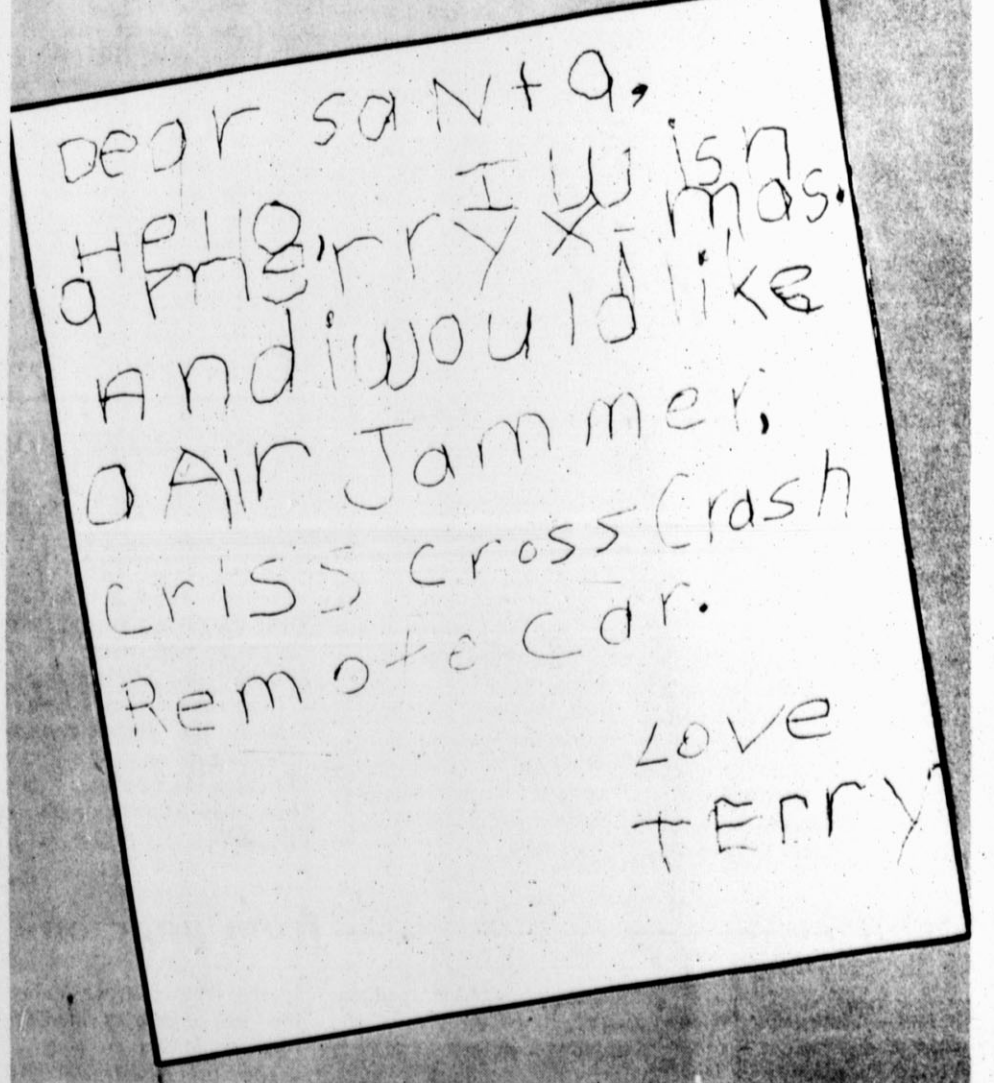 Dear saNta,
Hello, I W isn
a merry x-mas.
And i would like
a Air Jammer,
criss cross Crash
Remote Car.
Love
TErry